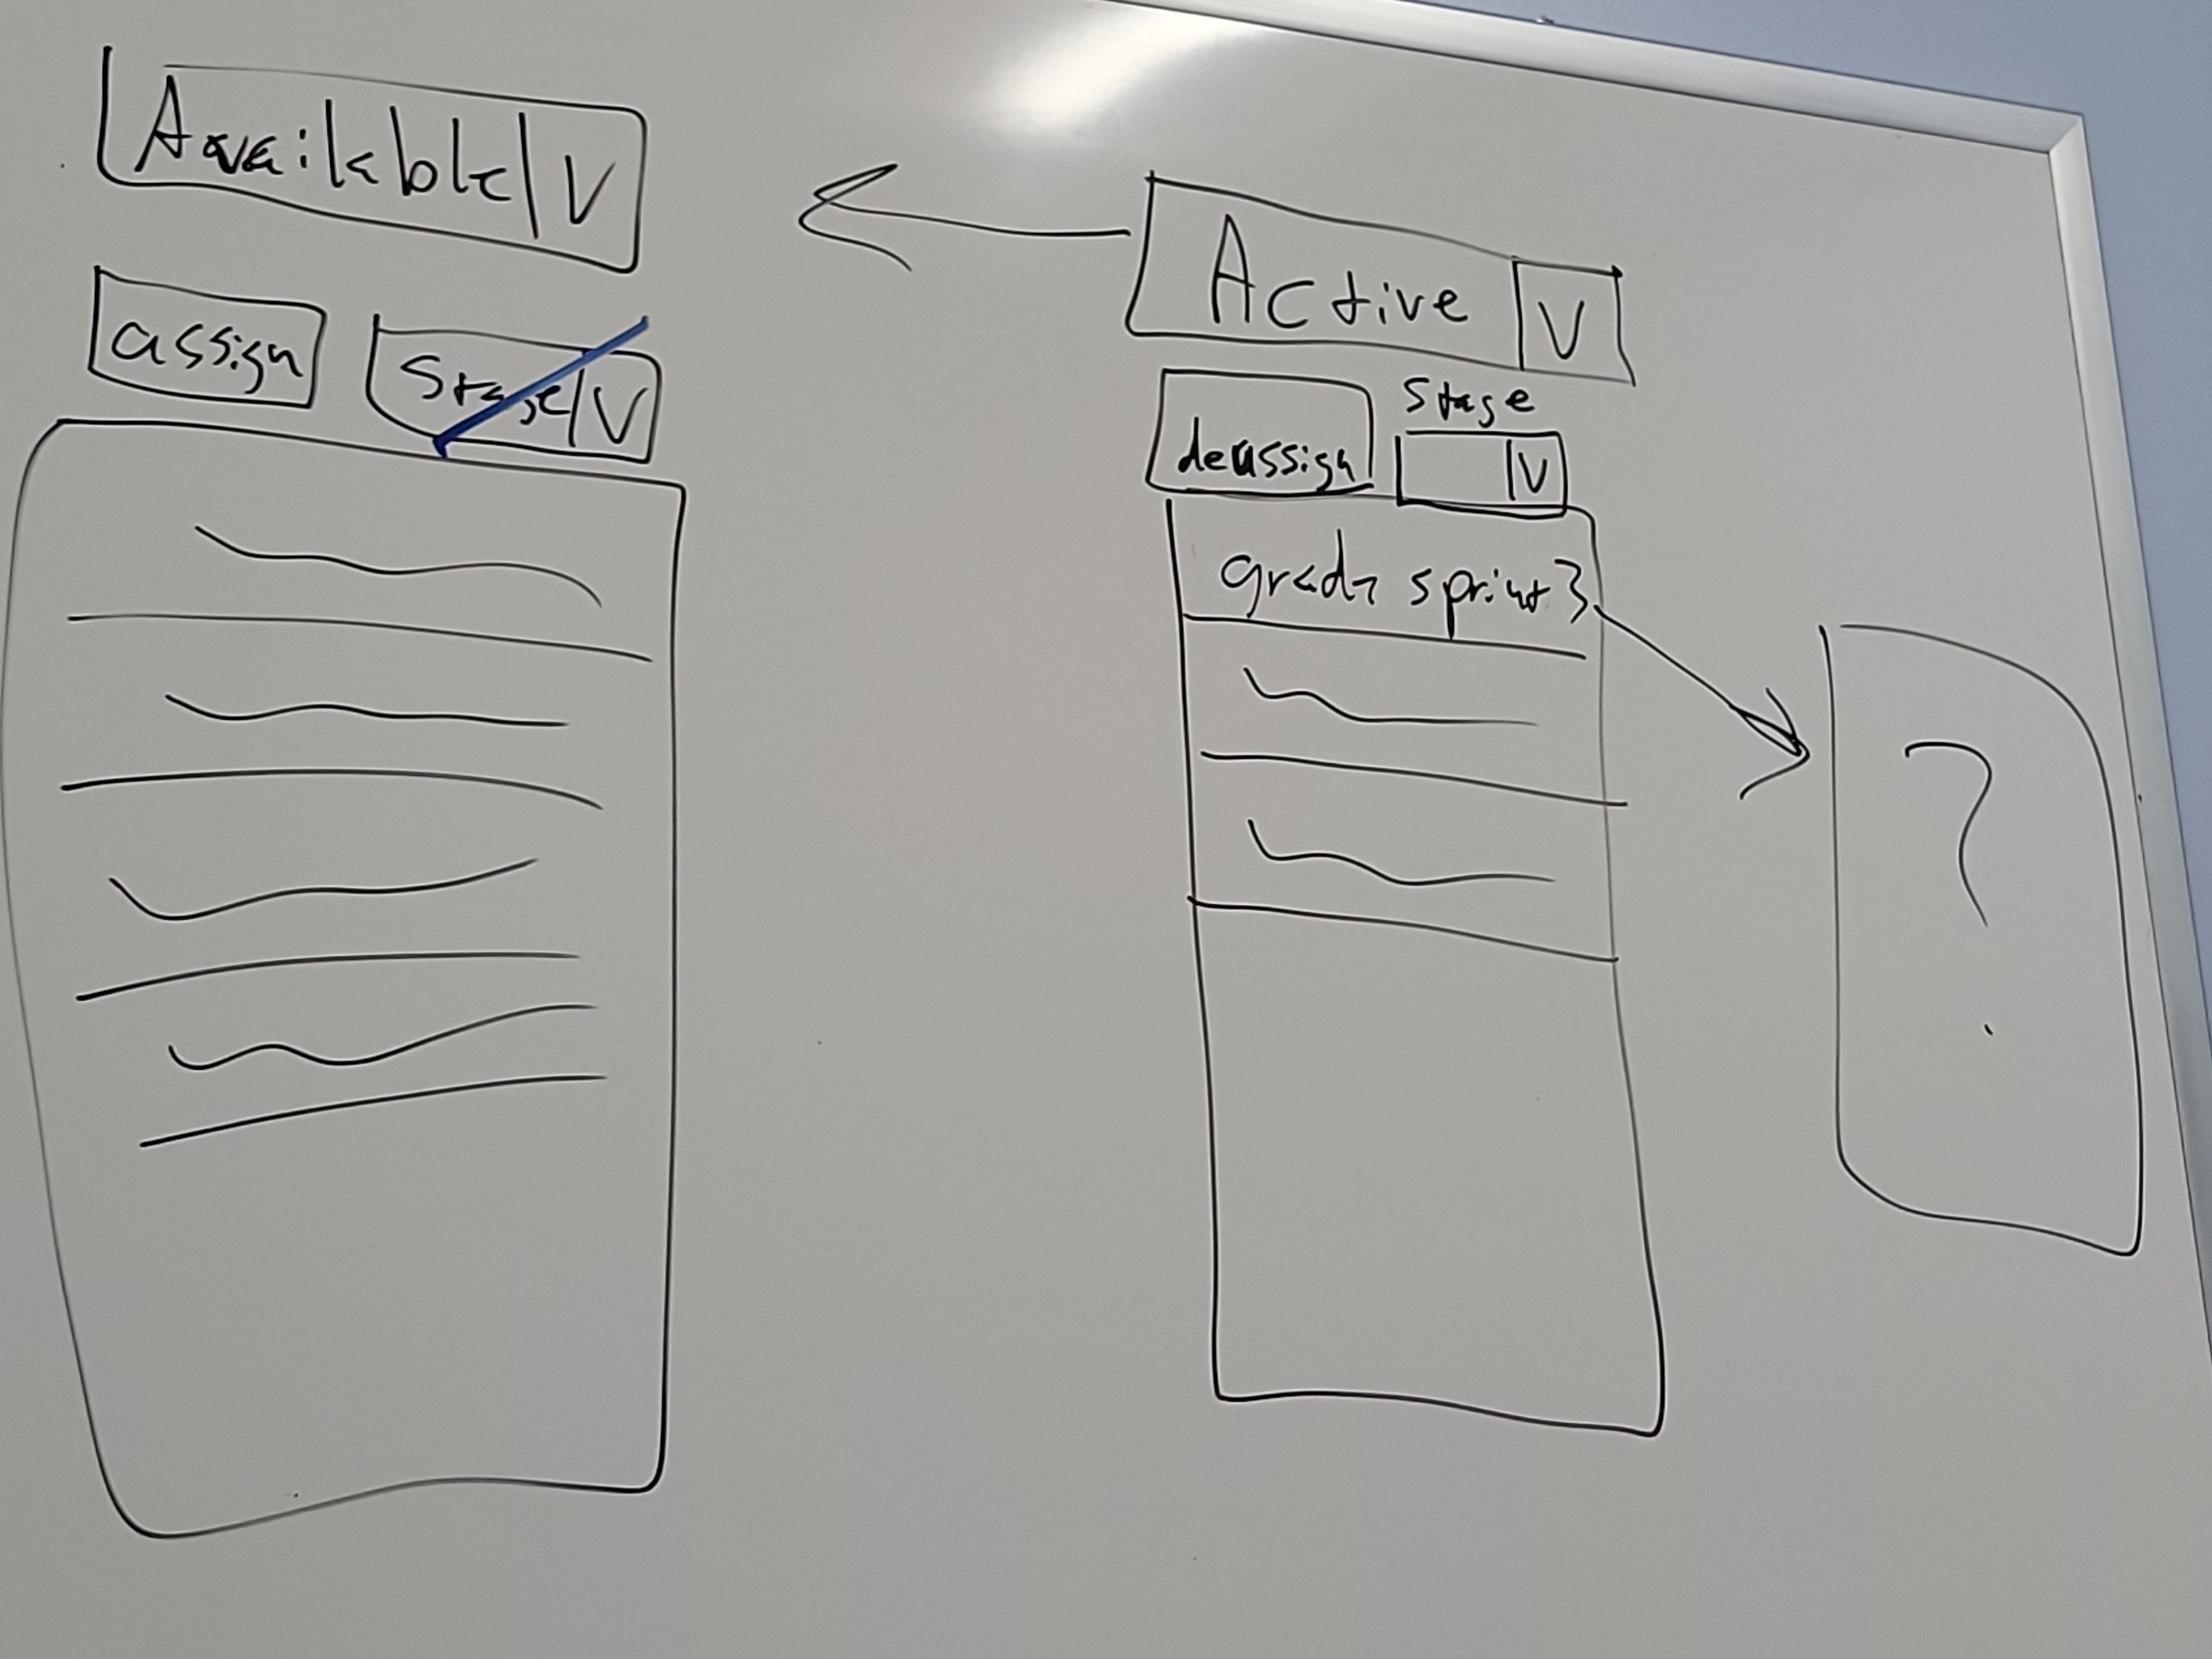 Available V
assign
Stage V
Active V
deassign
Stage
V
grade sprint 3
?